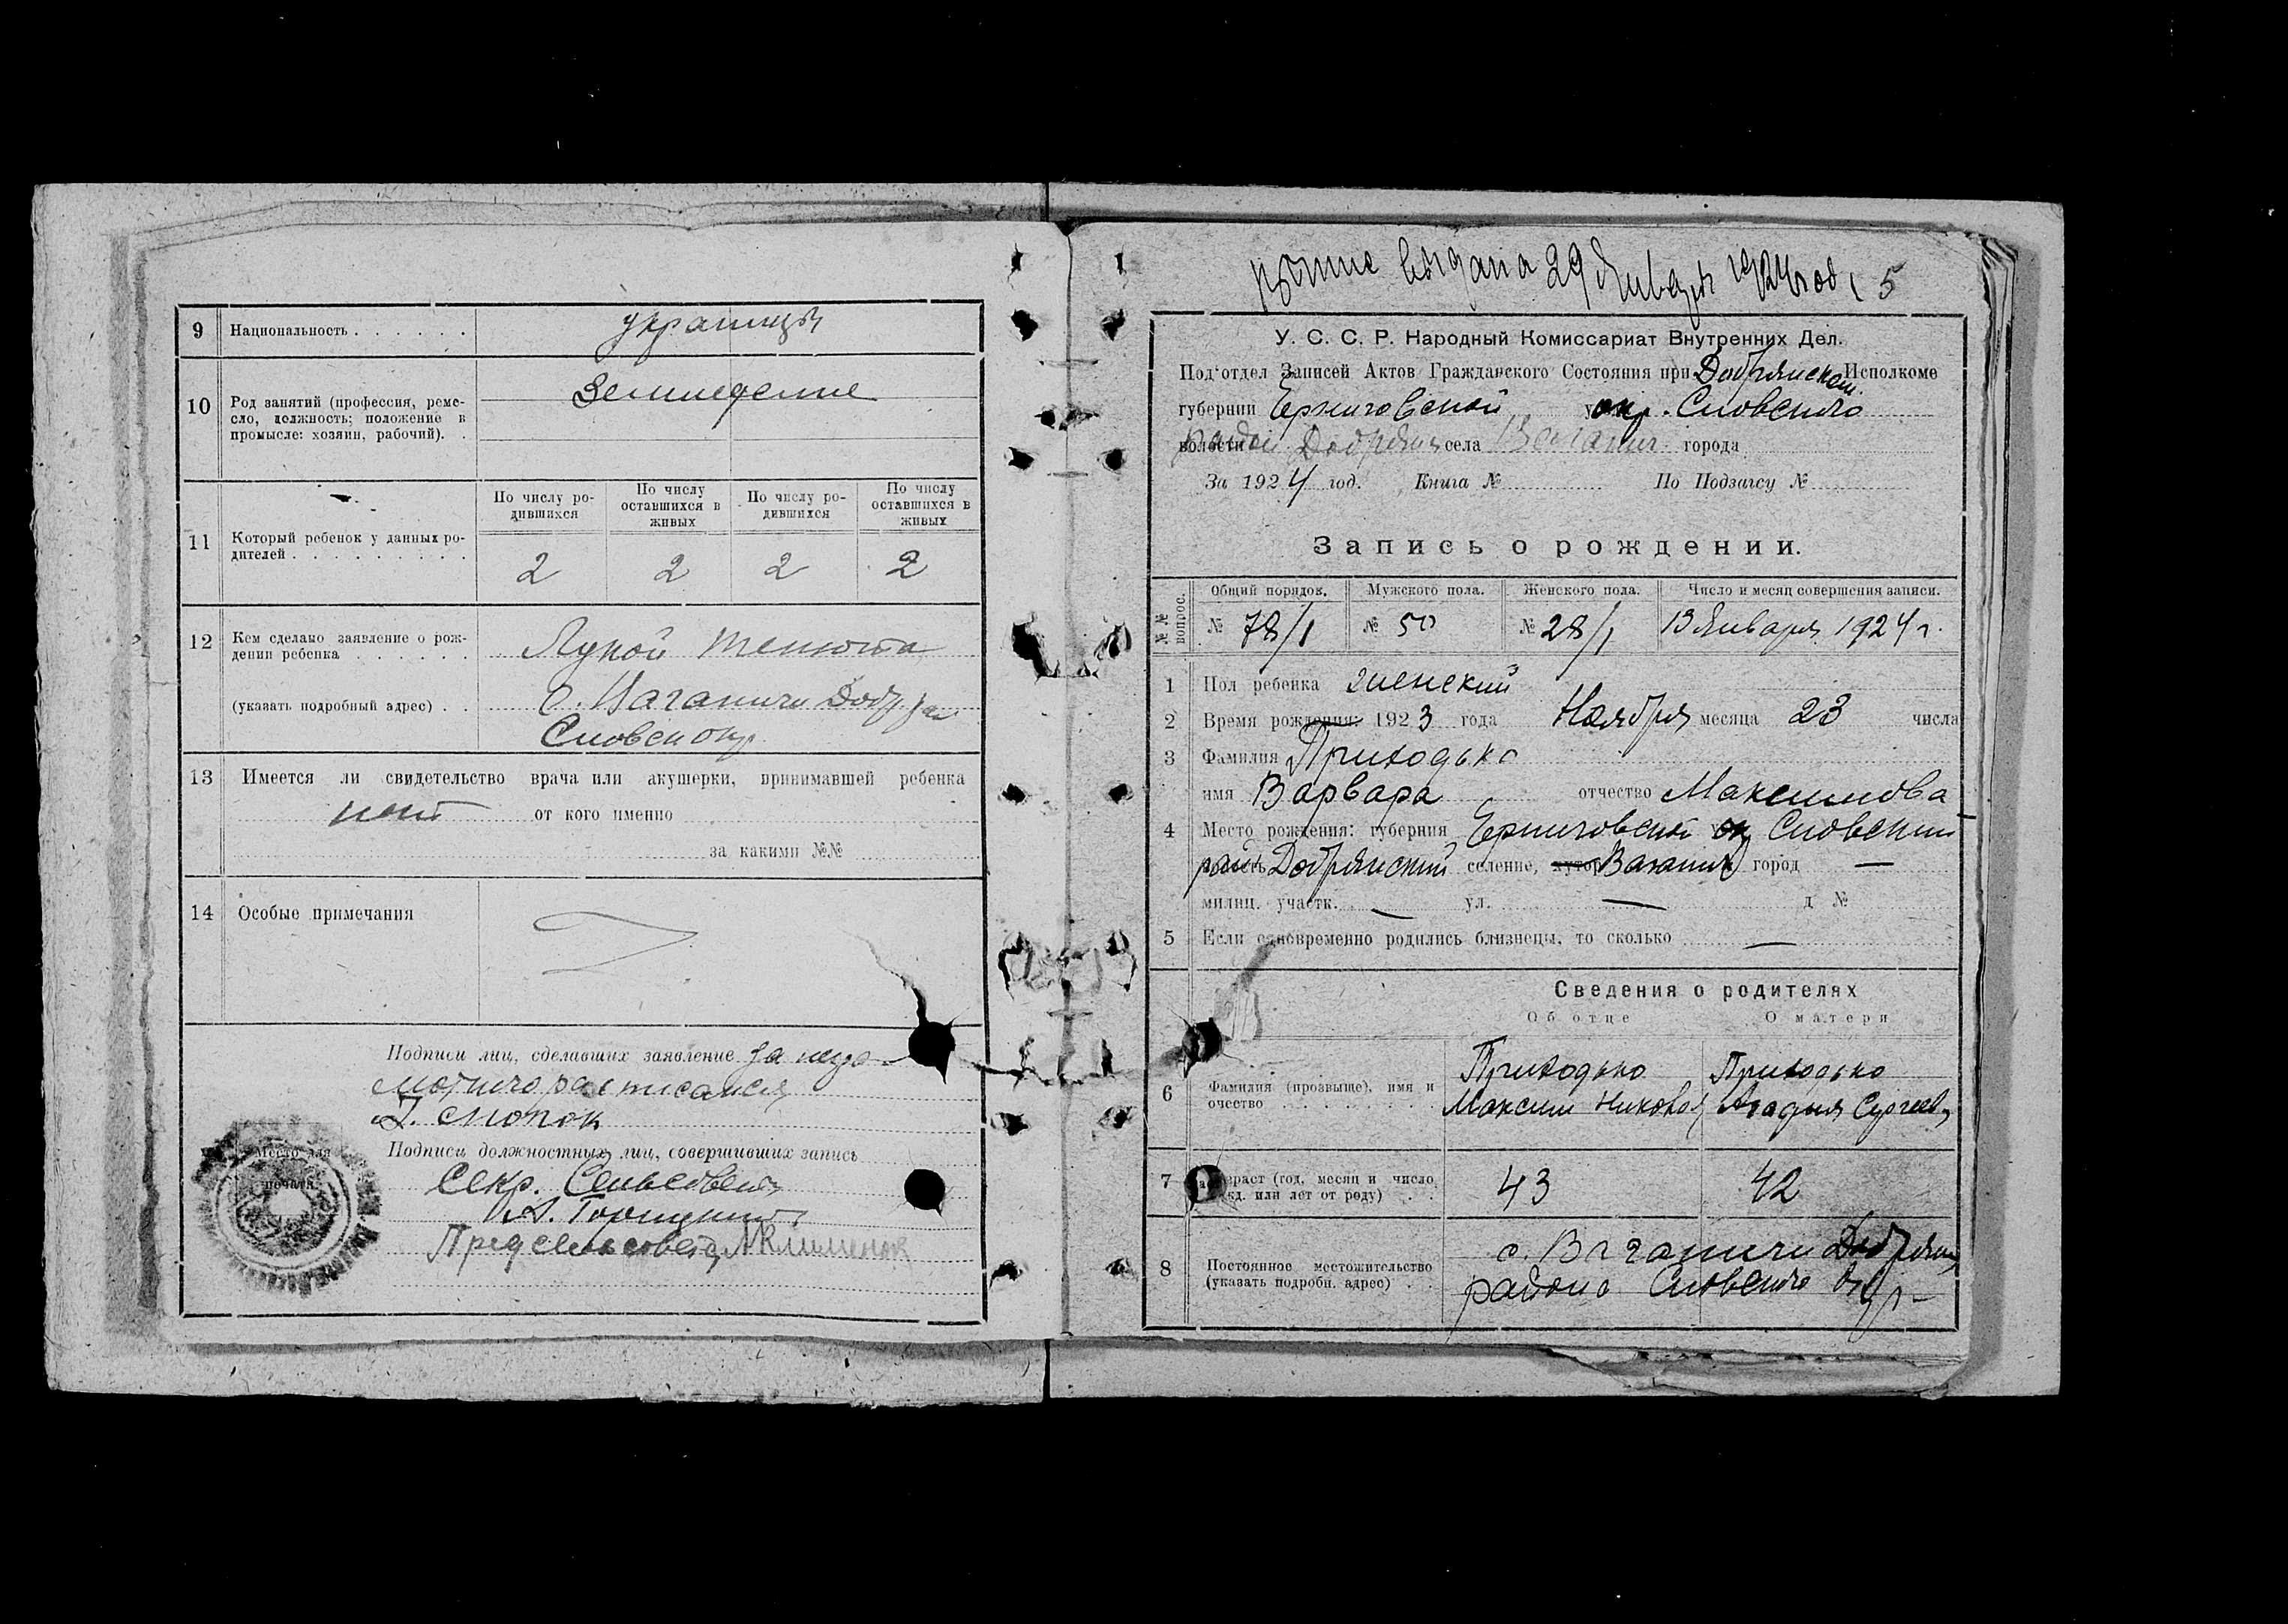 9 Национальность . . . . . . украинцы
10 Род занятий (профессия, реме-
сло, должность; положение в
промысле: хозяин, рабочий). .
Земледелие
По числу ро-
дившихся
По числу
оставшихся в
живых
По числу ро-
дившихся
По числу
оставшихся в
живых
11 Который ребенок у данных ро-
дителей . . . . . . . . .
2 2 2 2
12 Кем сделано заявление о рож-
дении ребенка . . . . . .
Лукой
(указать подробный адрес) . .
с. Ваганичи Добр
Сновск окр.
13 Имеется ли свидетельство врача или акушерки, принимавшей ребенка
нет от кого именно
за какими №№
14 Особые примечания
Подписи лиц, сделавших заявление за негра-
мотного расписался
Место для
печати.
Подписи должностных лиц, совершивших запись
Секр. Сельсовета
Пред сельсовета Клименок
копие выдана 29 Января 1924 год 5
У. С. С. Р. Народный Комиссариат Внутренних Дел.
Под‘отдел Записей Актов Гражданского Состояния при Добрянском Исполкоме
губернии Черниговской окр. Сновского
волости район Добрянск села Ваганич города
За 1924 год. Книга № По Подзагсу №
Запись о рождении.
№№ вопрос.
Общий порядов. Мужского пола. Женского пола. Число и месяц совершения записи.
№ 78/1 № 50 № 28/1 13 Января 1924 г.
1 Пол ребенка женский
2 Время рождения: 1923 года Ноября месяца 23 числа
3 Фамилия Приходько
имя Варвара отчество Максимова
4 Место рождения: губерния Черниговской ок Сновский
район Добрянский селение, хутор Ваганичи город —
милиц. участк. — ул. — д №
5 Если одновременно родились близнецы, то сколько —
Сведения о родителях
Об отце О матери
Приходько Приходько
6 Фамилия (прозвыще), имя и
очество . . . . . . . .
Максим Агафия Сергеев
7 Возраст (год, месяц и число
рожд. или лет от роду) . .
43 42
8 Постоянное местожительство
(указать подробн. адрес) . .
с. Ваганичи Добрянск
района Сновского Окр-